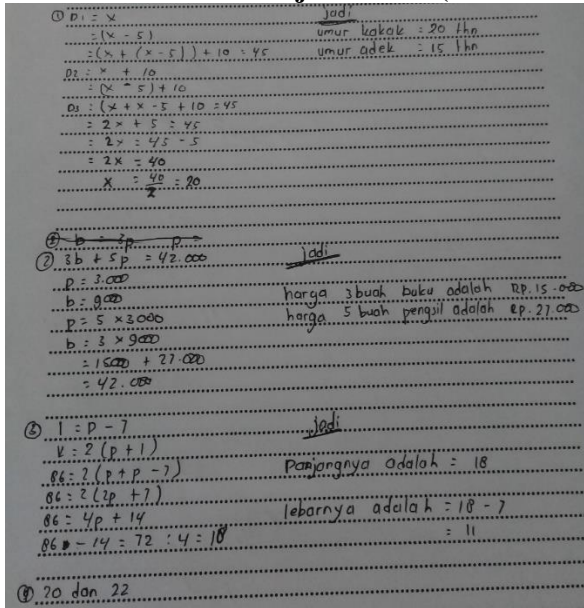 ① D1 = x
= (x - 5)
= (x + (x - 5)) + 10 = 45
D2 = x + 10
= (x - 5) + 10
D3 : (x + x - 5 + 10 = 45
= 2x + 5 = 45
= 2x = 45 - 5
= 2x = 40
x = 40/2 = 20
jadi
umur kakak = 20 thn
umur adek = 15 thn
② b = 3p p =
② 3b + 5p = 42.000
p = 3.000
b = 9000
p = 5 x 3000
b = 3 x 9000
= 15000 + 27.000
= 42.000
jadi
harga 3 buah buku adalah Rp. 15.000
harga 5 buah pengsil adalah Rp. 27.000
③ l = p - 7
k = 2 (p + l)
86 = 2 (p + p - 7)
86 = 2 (2p + 7)
86 = 4p + 14
86 - 14 = 72 : 4 = 18
jadi
Panjangnya adalah = 18
lebarnya adalah = 18 - 7
= 11
④ 20 dan 22